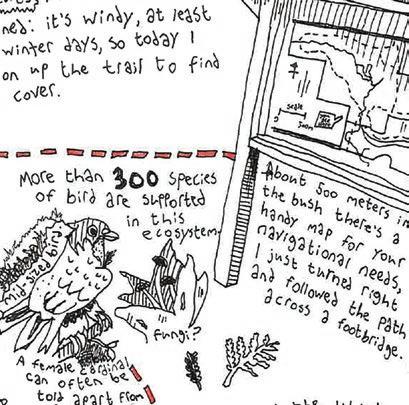 ned. it's windy, at least
winter days, so today I
on up the trail to find
cover.
scale
500m
More than 300 species
of bird are supported
in this
ecosystem
mid-sized bird
fungi?
A female cardinal
can often be
told apart from
About 500 meters in
the bush there's a
handy map for your
navigational needs,
I just turned right
and followed the path
across a footbridge.